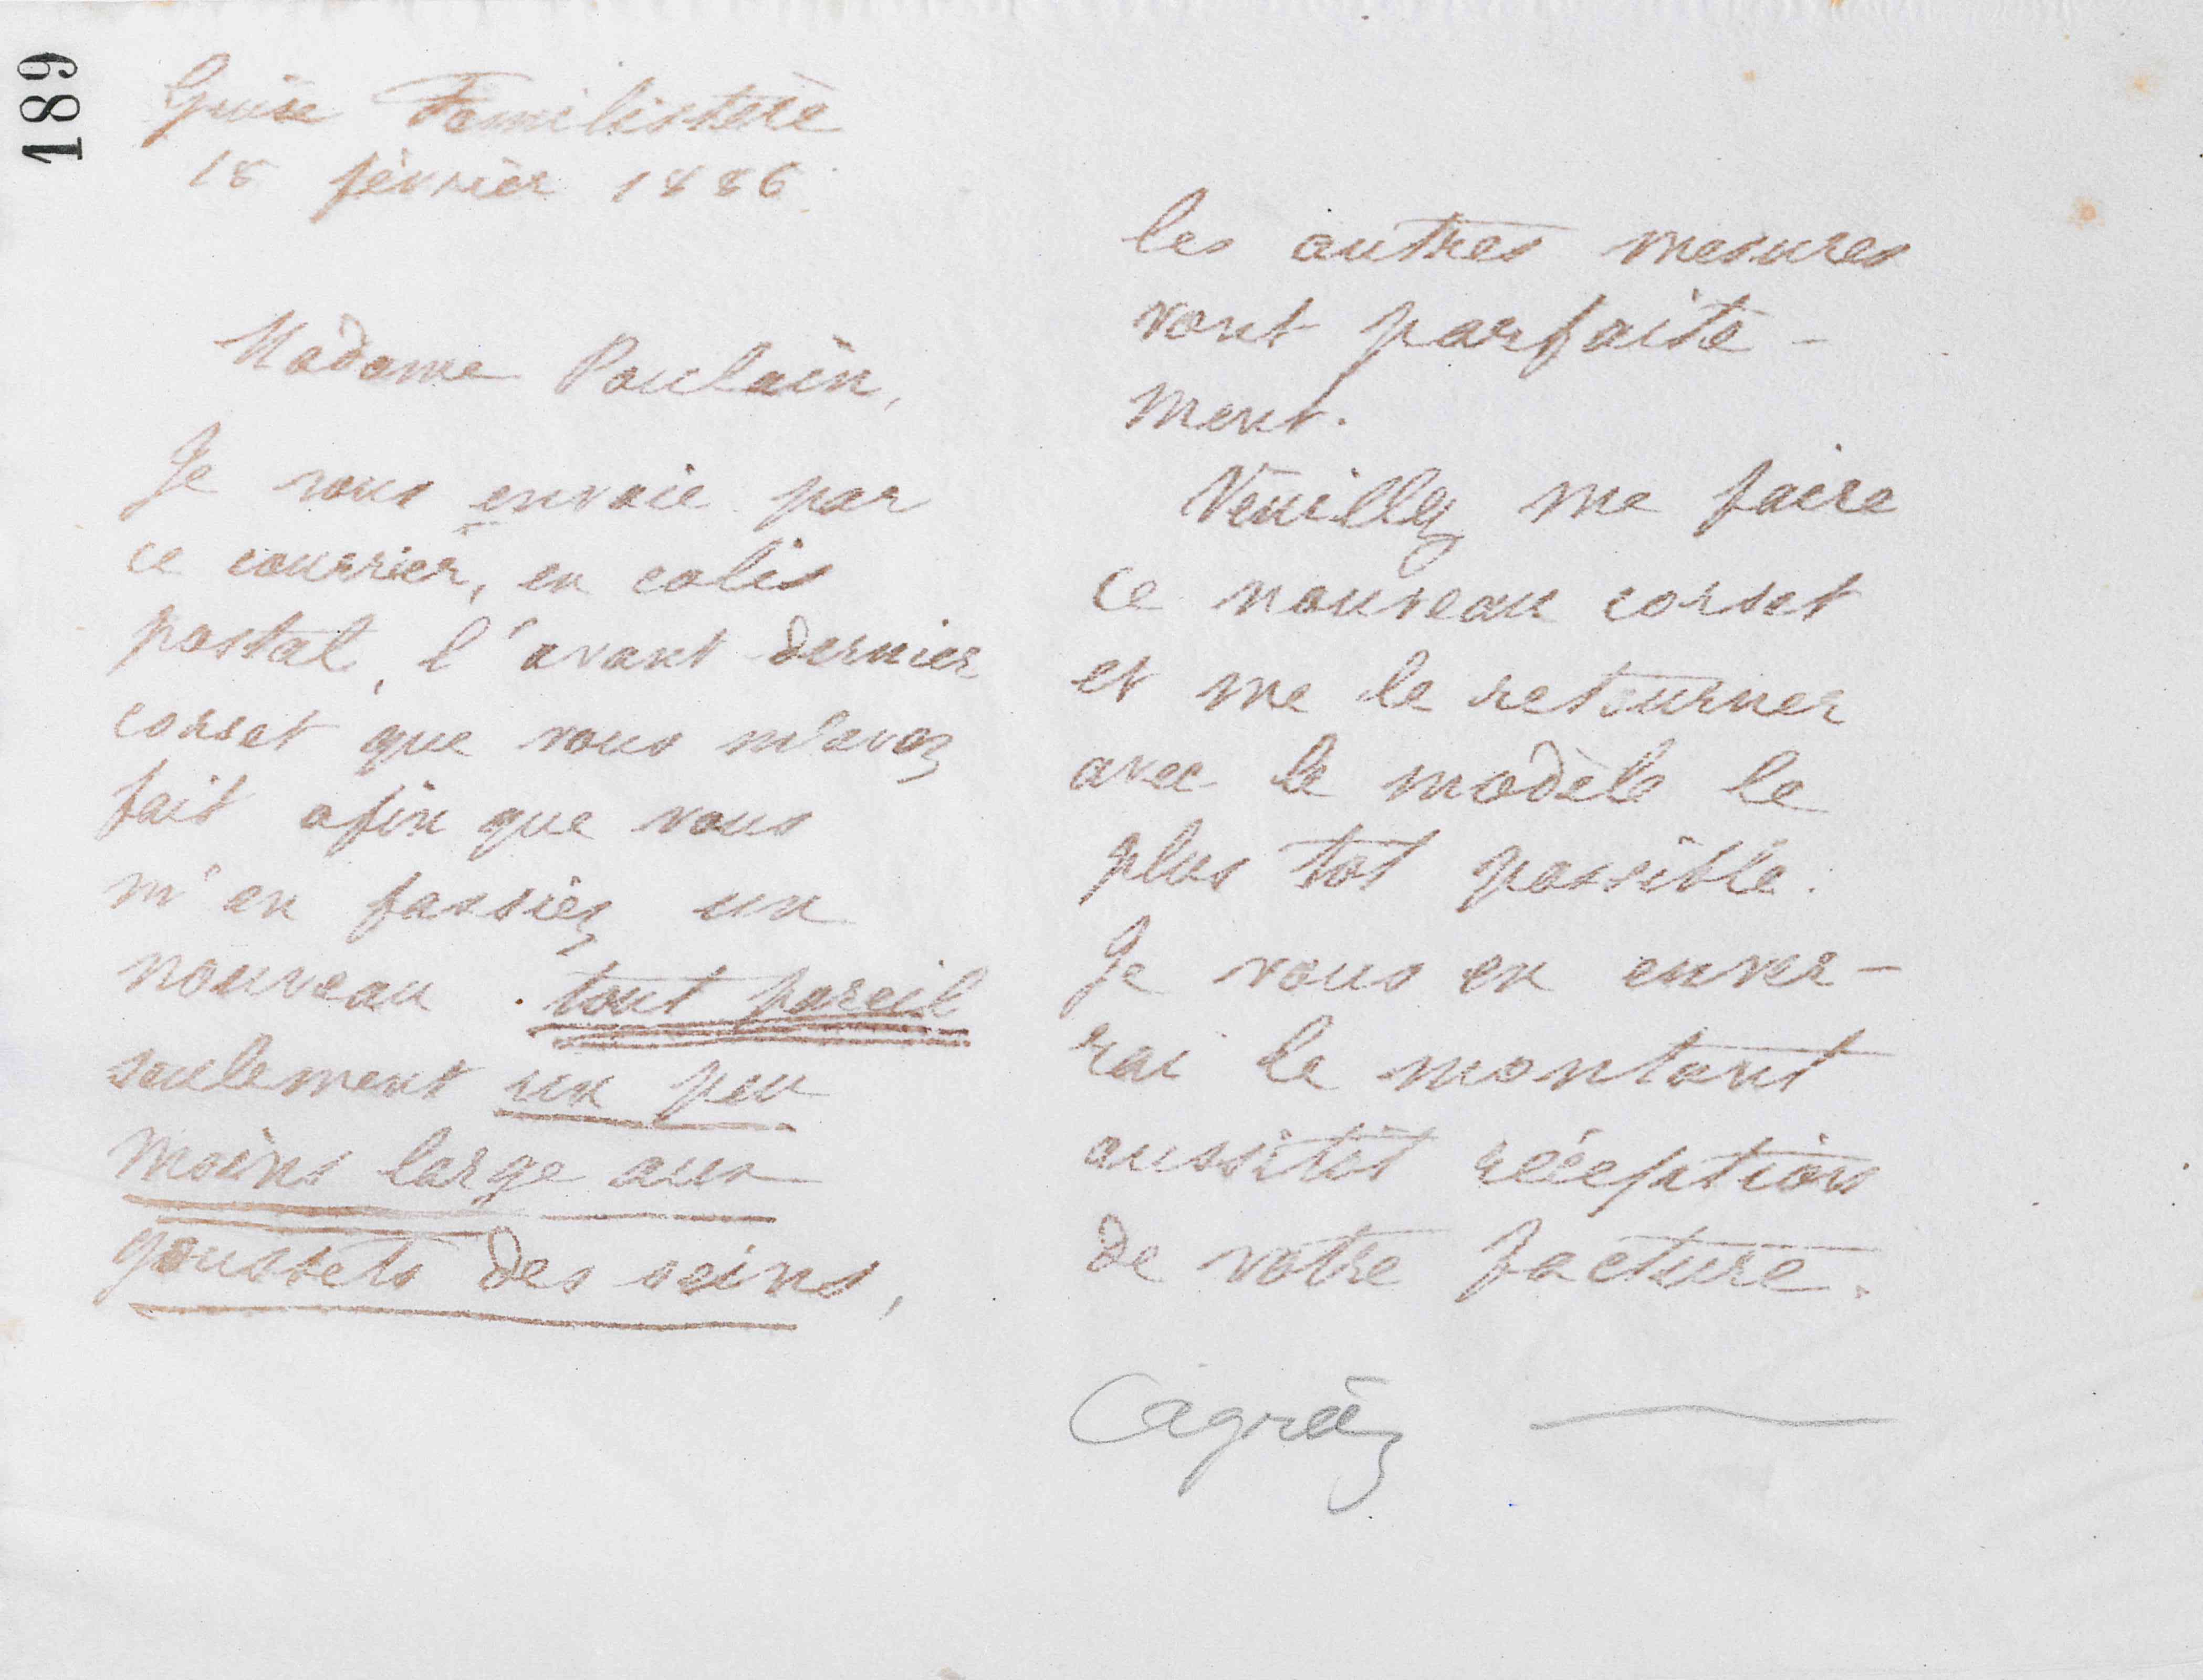 189
Guise Familistère
18 février 1886.
Madame Poulain,
Je vous envoie par
ce courrier, en colis
postal, l'avant dernier
corset que vous m'avez
fait afin que vous
m'en fassiez un
nouveau tout pareil
seulement un peu
moins large aux
goussets des seins,
les autres mesures
vont parfaite-
ment.
Veuillez me faire
ce nouveau corset
et me le retourner
avec le modèle le
plus tôt possible.
Je vous en enver-
rai le montant
aussitôt réception
de votre facture.
Agréez